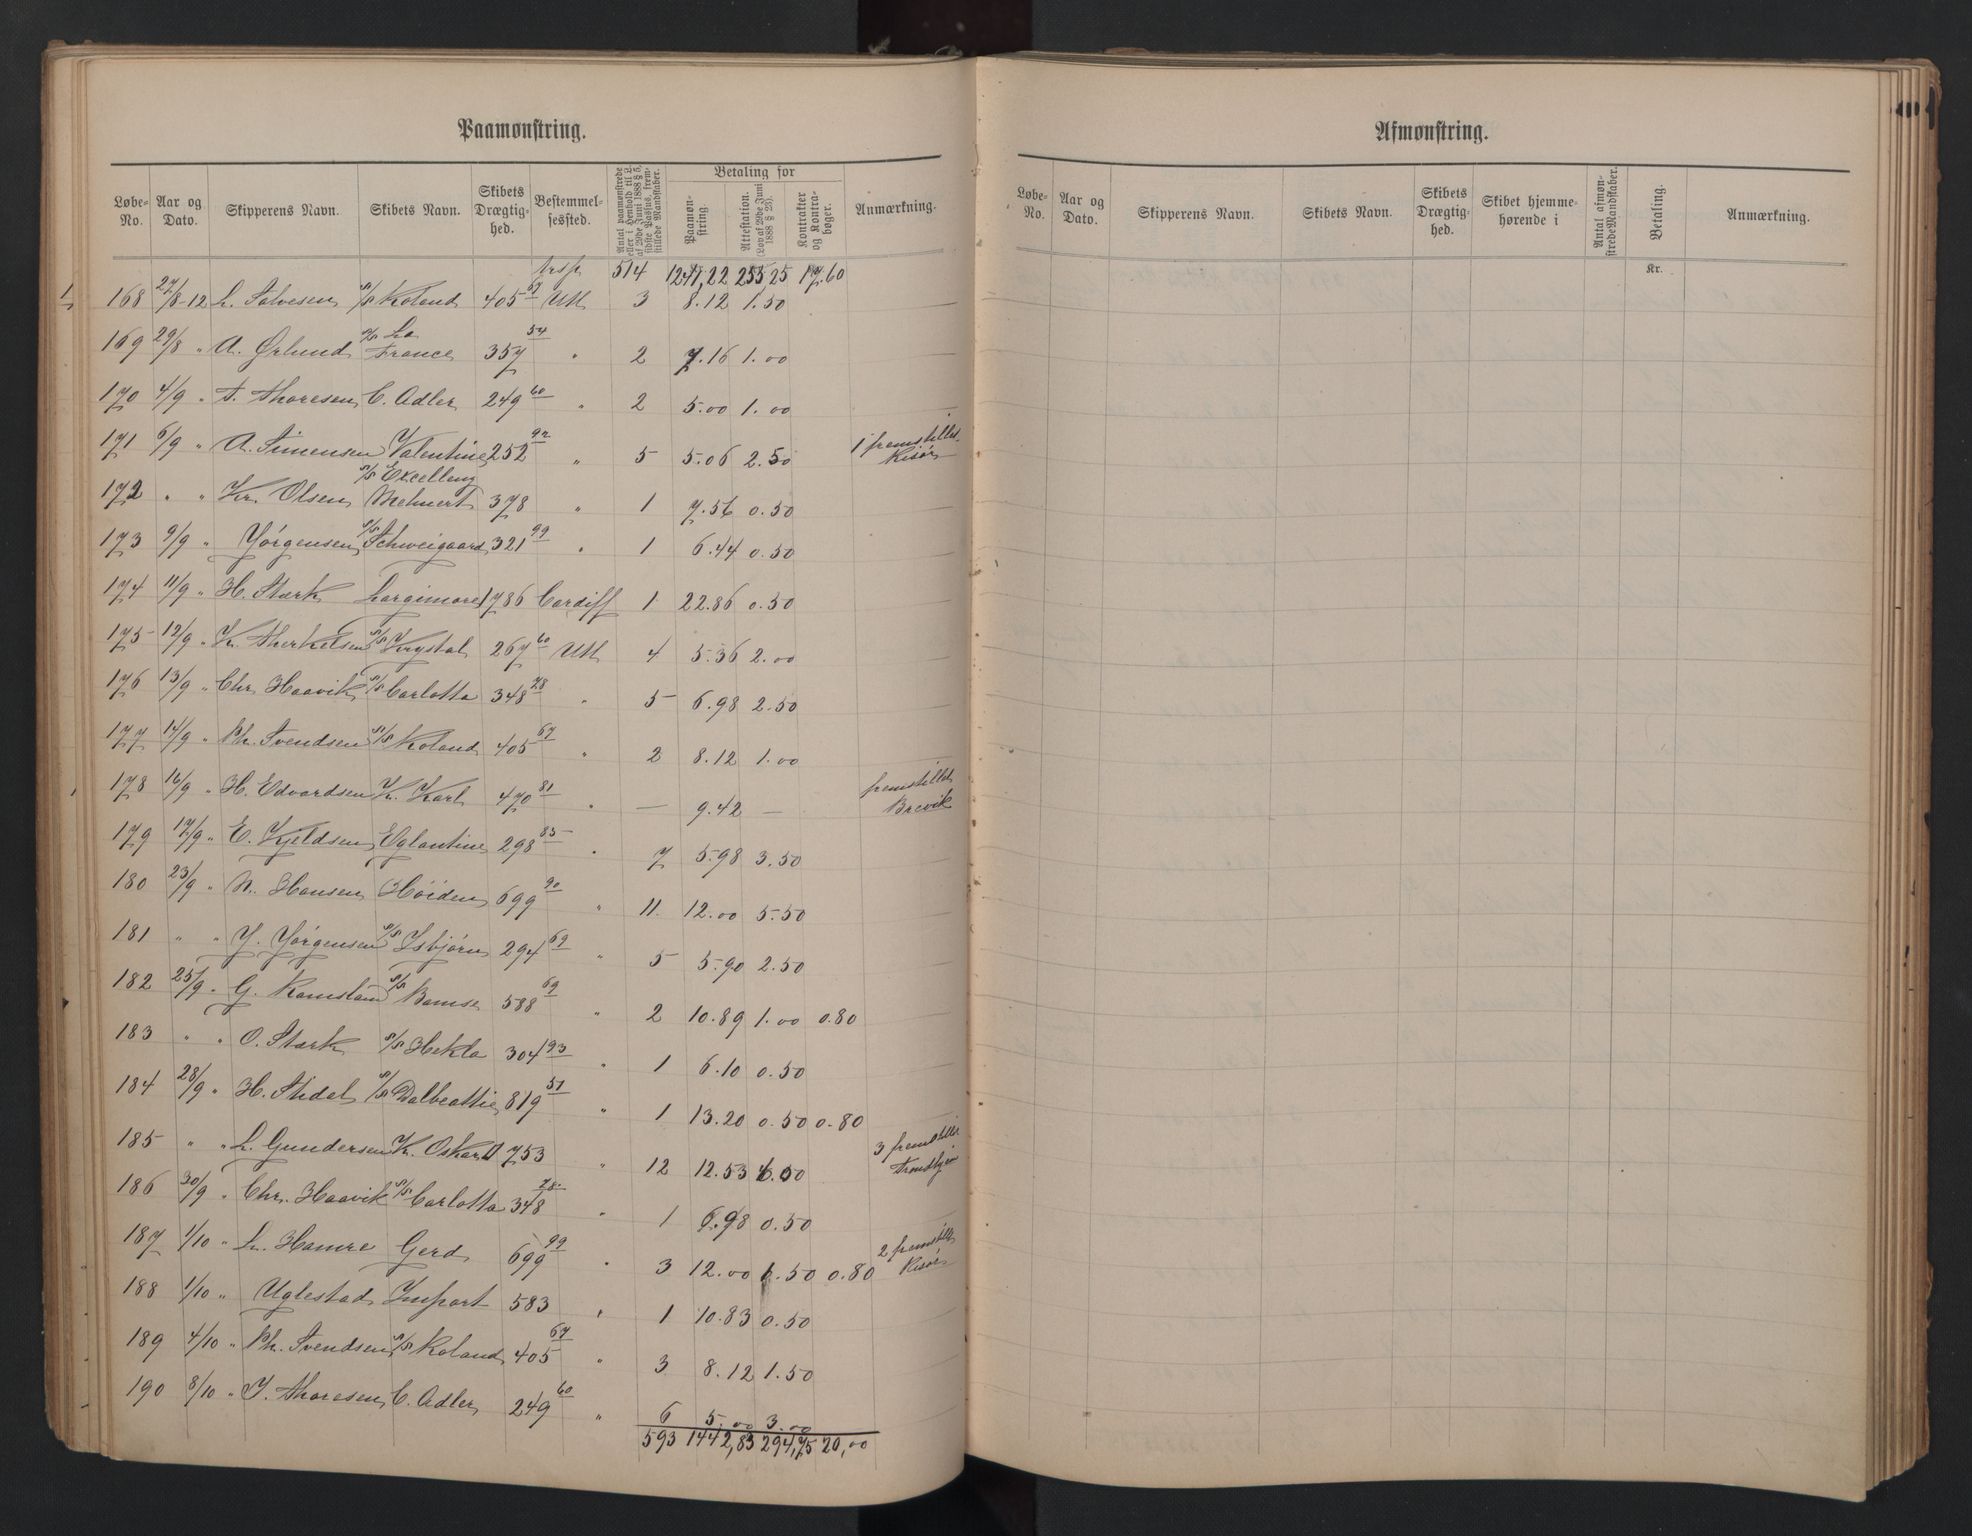 Paamønstring.
Løbe-No. Aar og Dato. Skipperens Navn. Skibets Navn. Skibets Drægtig-hed. Bestemmel-sessted. Antal paamønstrede eller i Henhold til L. af 29de Juni 1888 § 5, sidste Passus, frem-stillede Mandskaber. Betaling for Paamøn-string. Attestation. (Lov af 29de Juni 1888 § 25). Kontrakter og Kontra-bøger. Anmærkning.
Trsp. 514 1241,22 255,25 17.60
168 27/8-12 L. Salvesen s/s Roland 405 67 Udl 3 8.12 1.50
169 29/8 " A. Ørlund s/s La France 357 54 " 2 7.16 1.00
170 4/9 " T. Thoresen C. Adler 249 60 " 2 5.00 1.00
171 6/9 " A. Simensen Valentine 252 92 " 5 5.06 2.50 1 fremstillet Risør
172 " " Kr. Olsen s/s Excellenz Mehnert 378 " 1 7.56 0.50
173 9/9 " Jörgensen s/s Schweigaard 321 99 " 1 6.44 0.50
174 11/9 " H. Stærk Largimore 1786 Cardiff 1 22.86 0.50
175 12/9 " K. Therkelsen s/s Krystal 267 60 Udl 4 5.36 2.00
176 13/9 " Chr Haavik s/s Carlotta 348 78 " 5 6.98 2.50
177 14/9 " Ph. Svendsen s/s Roland 405 67 " 2 8.12 1.00
178 16/9 " H. Edvardsen K. Karl 470 81 " — 9.42 — fremstillet Brevik
179 17/9 " E. Kjeldsen Eglantine 298 85 " 7 5.98 3.50
180 23/9 " N. Hansen Höiden 699 90 " 11. 12.00 5.50
181 " " J. Jörgensen s/s Isbjörn 294 69 " 5 5.90 2.50
182 25/9 " G. Ramsland s/s Bamse 588 69 " 2 10.89 1.00 0.80
183 " " O. Stærk s/s Hekla 304 93 " 1 6.10 0.50
184 28/9 " H. Stidal s/s Dalbeattie 819 51 " 1 13.20 0.50 0.80
185 " " L. Gundersen K. Oskar II 753 " 12 12.53 6.00 3 fremstillet Trondhjem
186 30/9 " Chr. Haavik s/s Carlotta 348 78 " 1 6.98 0.50
187 1/10 " L. Hamre Gerd 699 99 " 3 12.00 1.50 0.80 2 fremstillet Risør
188 1/10 " Uglestad Import 583 " 1 10.83 0.50
189 4/10 " Ph. Svendsen s/s Roland 405 67 " 3 8.12 1.50
190 8/10 " T. Thoresen C. Adler 249 60 " 6 5.00 3.00
593 1442,83 294,75 20,00
Afmønstring.
Løbe-No. Aar og Dato. Skipperens Navn. Skibets Navn. Skibets Drægtig-hed. Skibet hjemme-hørende i Antal afmøn-strede Mandskaber. Betaling. Anmærkning.
Kr.